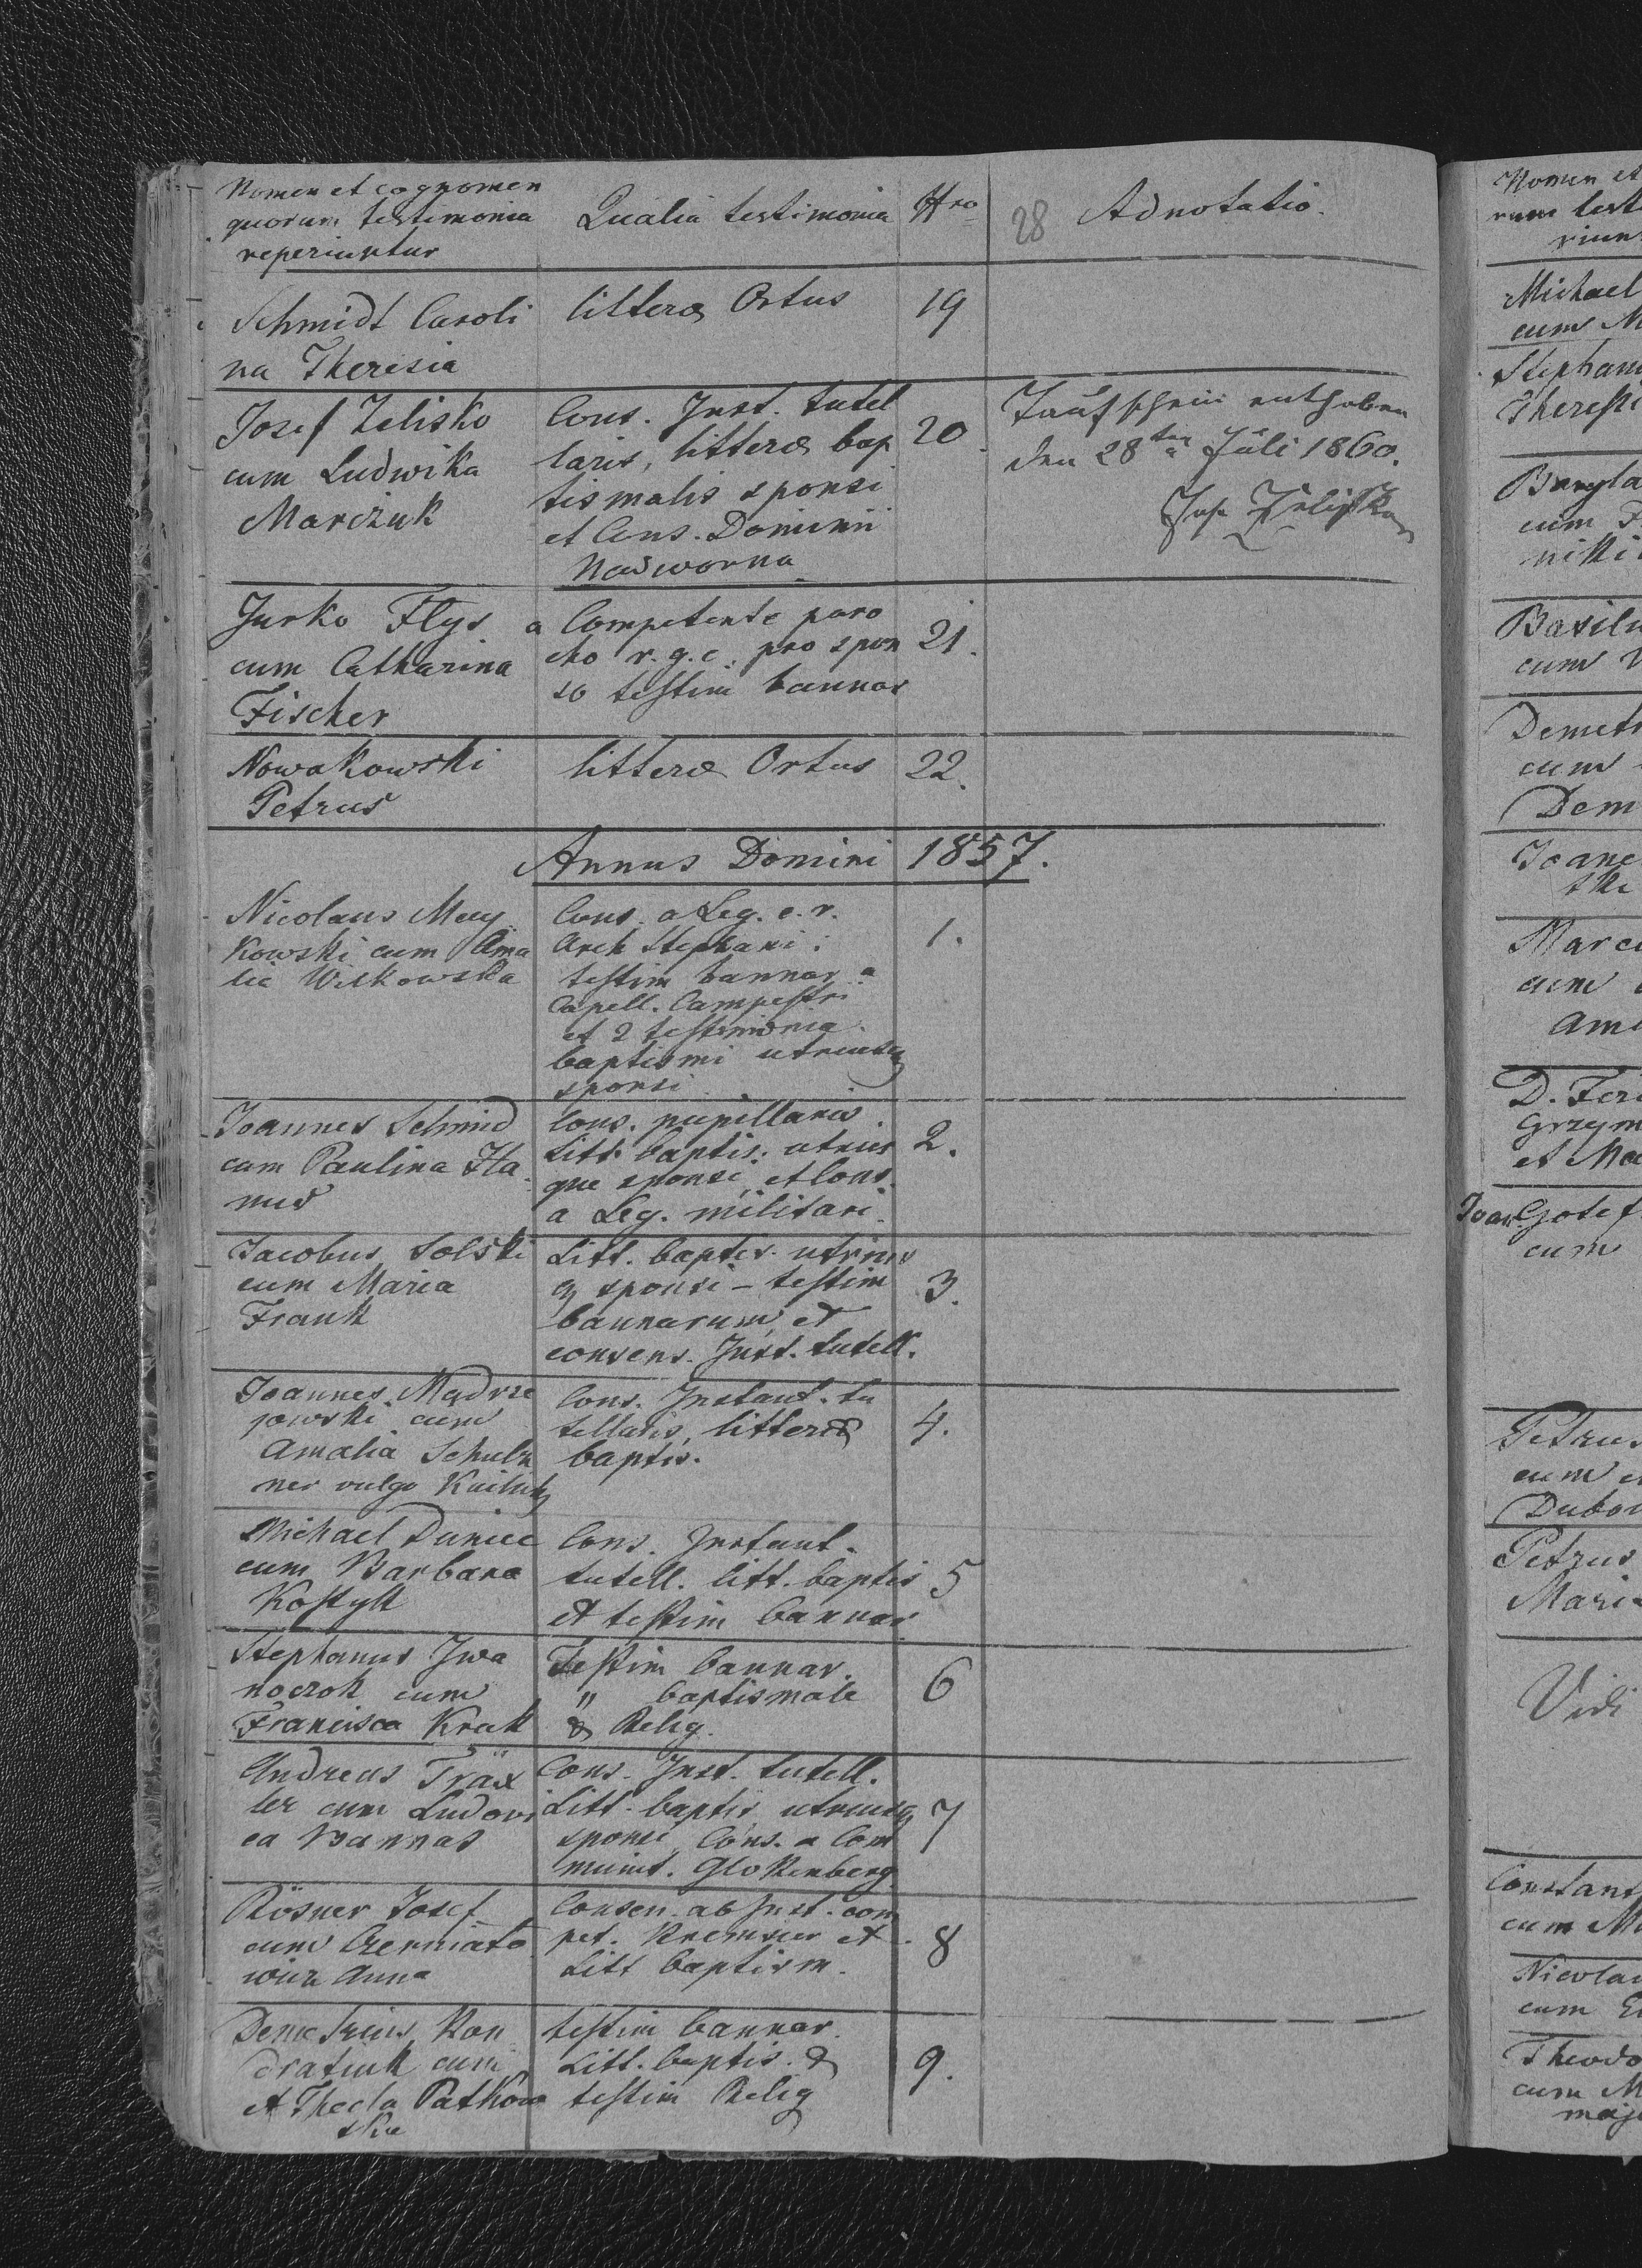 Nomen et cognomen
quorum testimonia
reperiuntur
Qualia testimonia
Nro
28
Adnotatio.
Schmidt Caroli
na Theresia
litterae Ortus
19
Josef Zelisko
cum Ludwika
Marczuk
Cons. Inst. tutel
laris, litterae bap
tismalis sponsi
et Cons. Dominii
Nadworna
20
Taufschein enthoben
den 28ten Juli 1860.
Jos. Zeliska
Jurko Flys
cum Catharina
Fischer
a Competente paro
cho r. g. c. pro spon
so testim bannor
21.
Nowakowski
Petrus
litterae Ortus
22.
Annus Domini 1857.
Nicolaus May
kowski cum Ama
lia Witkowska
Cons. a Leg. c. r.
Arch Stephani:
testim bannor a
Capell. Campestri
et 2 testimonia
baptismi utriusq
sponsi
1.
Joannes Schmid
cum Paulina Ha
nus
Cons. pupillaris
Litt. baptis. utrius
que sponsi et Cons.
a Leg. militari.
2.
Jacobus Solski
cum Maria
Frank
Litt. baptis. utrius
q sponsi - testim
bannarum et
consens. Inst. tutell.
3.
Joannes Mądrze
jowski cum
Amalia Schulz
ner vulgo
Cons. Instant. tu
tellaris, litterae
baptis.
4.
Michael Duniec
cum Barbara
Kostyk
Cons. Instant.
tutell. litt. baptis
et testim bannar
5
Stephanus Iwa
noczok cum
Francisca Kruk
Testim bannar.
" baptismale
& Relig.
6
Andreas Träx
ler cum Ludovi
ca Bannas
Cons. Inst. tutell.
Litt. baptis utriusq
sponsi, Cons. a Com
munit. Glokenberg
7
Rösner Josef
cum Czerniato
wicz Anna
Consen. ab Inst. com
pet. Kremsier et
Litt baptism.
8
Demetrius Kon
dratiuk cum
et Thecla Patkow
ska
testim bannar.
Litt. baptis. &
testim Relig
9.
Nomen et
rum test
riun
Michael
cum M
Stephan
Theresi
cum F
niki
Basiliu
cum
Demetr
cum
Dem
Joane
ski
Marc
cum
Ama
D. Fer
Grzym
et Ma
Joan Josef
cum
Petrus
cum
Dubow
Petrus
Maria
Vidi
Constant
cum Ma
Nicolau
cum E
Theodo
cum M
maj